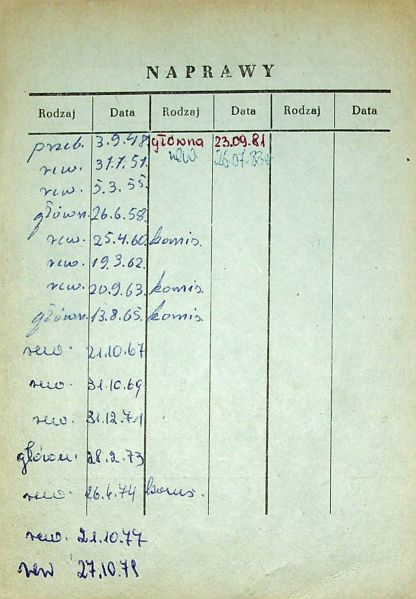 NAPRAWY
Rodzaj Data Rodzaj Data Rodzaj Data
przeb. 3.9.48 główna 23.09.81
rew. 31.7.51. rew 26.07.83
rew. 5.3.55.
główn. 26.6.58.
rew. 25.4.60. komis.
rew. 19.3.62.
rew. 20.9.63. komis.
główn. 13.8.65. komis.
rew. 21.10.67
rew. 31.10.69
rew. 31.12.71
główn. 28.2.73
rew. 26.6.74 komis.
rew. 21.10.77
rew 27.10.78